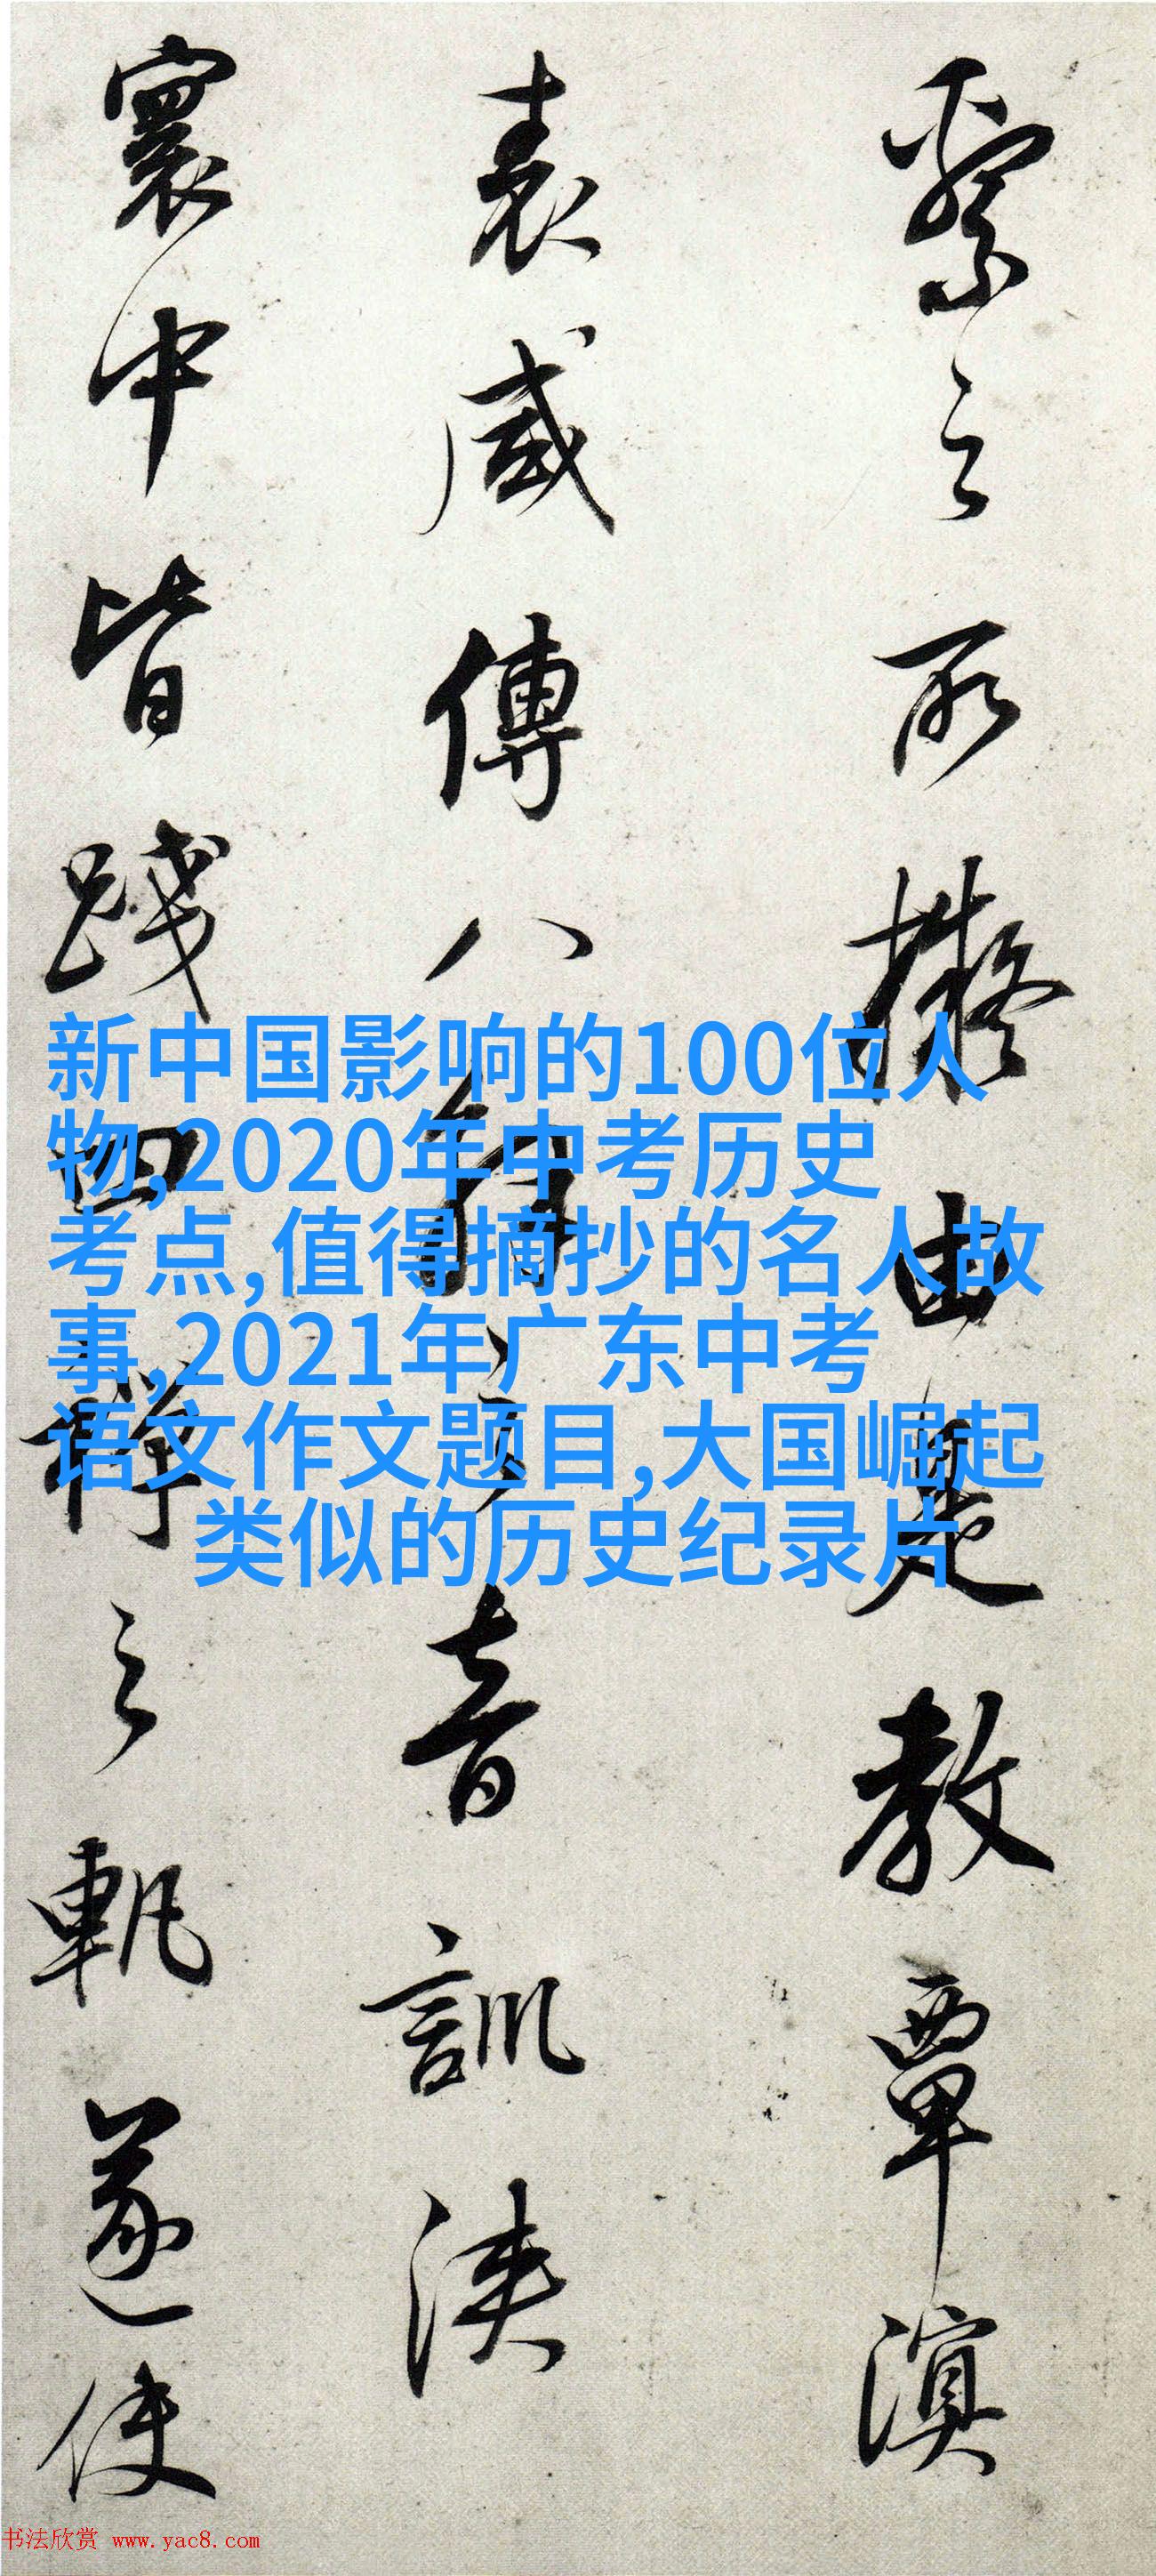 繄之所擬由是教覃溟
表威傳八
音訓浹
寰中皆踐四
之軌遂使
新中国影响的100位人
物,2020年中考历史
考点,值得摘抄的名人故
事,2021年广东中考
语文作文题目,大国崛起
类似的历史纪录片
书法欣赏 www.yac8.com